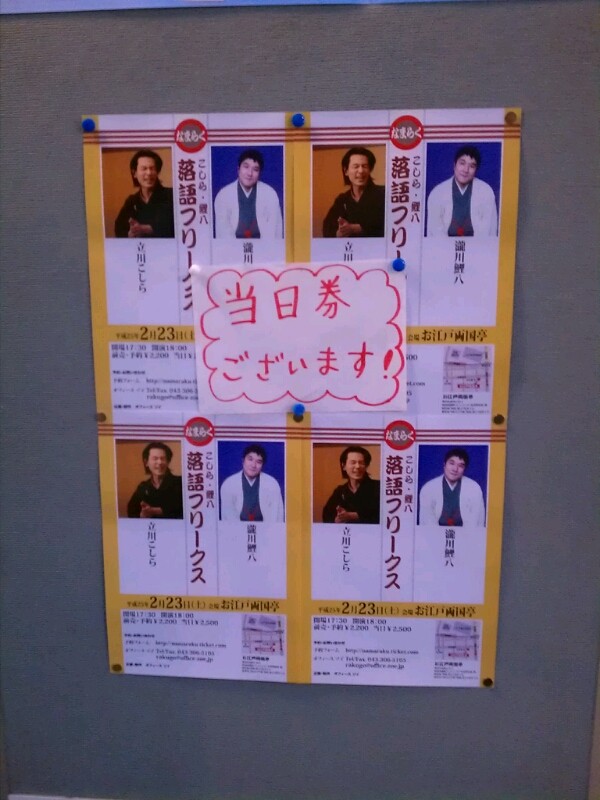 なまらく
こしら・鯉八
落語フリークス
立川こしら
瀧
平成25年2月23日(土)
開場17:30 開演18:00
前売・予約¥2,200 当日¥
なまらく
こしら・鯉八
落語フリー
立川
瀧川鯉八
会場 お江戸両国亭
お江戸両国亭
当日券
ございます!
なまらく
こしら・鯉八
落語フリークス
立川こしら
瀧川鯉八
平成25年2月23日(土) 会場 お江戸両国亭
開場17:30 開演18:00
前売・予約¥2,200 当日¥2,500
お江戸両国亭
なまらく
こしら・鯉八
落語フリークス
立川こしら
瀧川鯉八
平成25年2月23日(土) 会場 お江戸両国亭
開場17:30 開演18:00
前売・予約¥2,200 当日¥2,500
お江戸両国亭